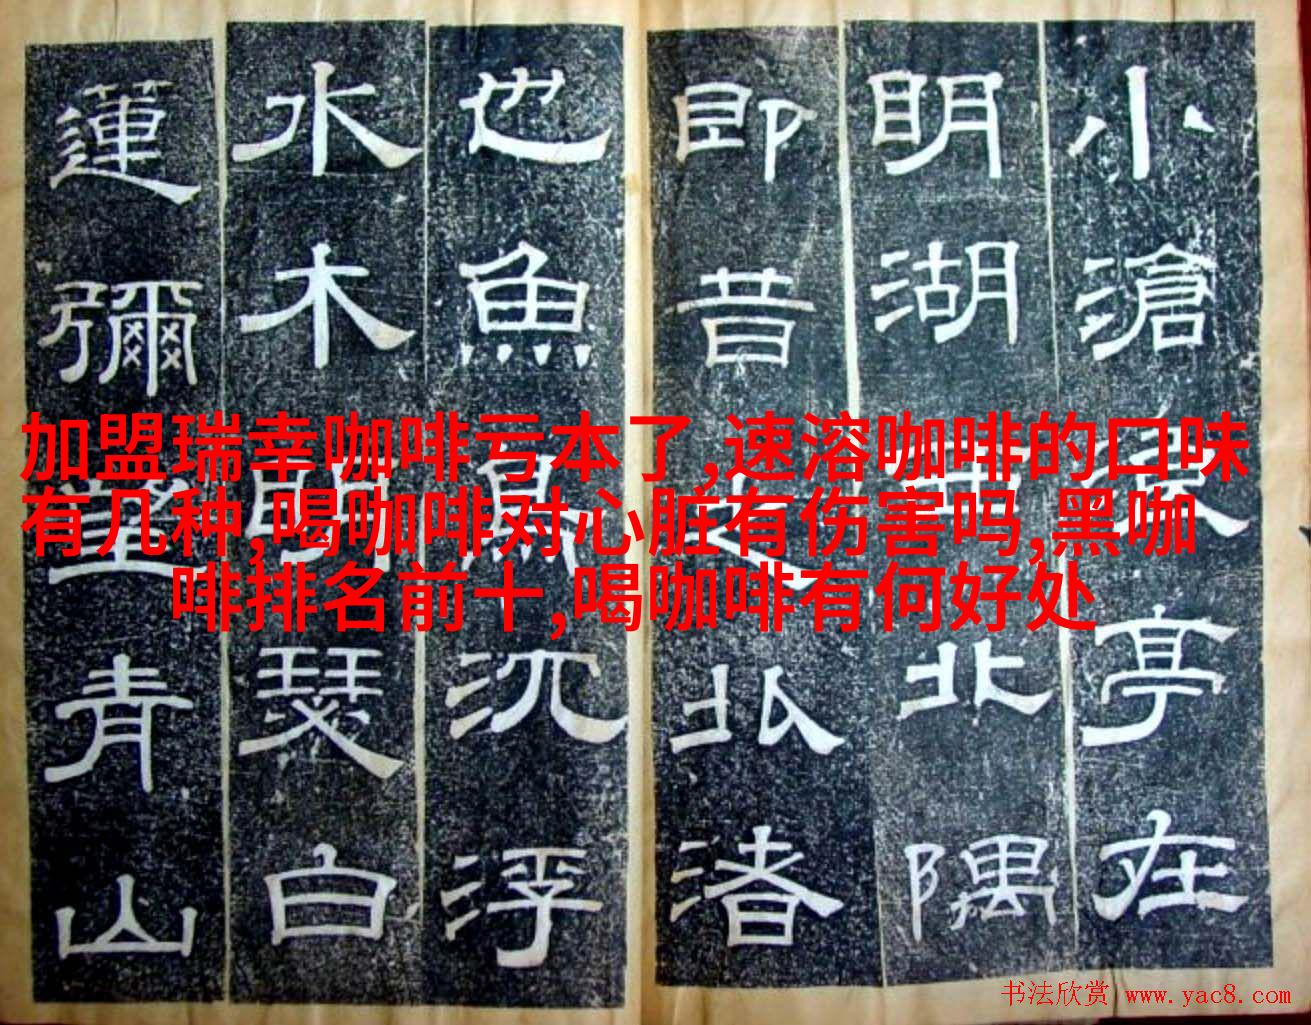 小滄浪亭在
明湖北隅
即昔之北渚
也魚鳥沉浮
水木明瑟白
蓮彌望青山
加盟瑞幸咖啡亏本了,速溶咖啡的口味
有几种,喝咖啡对心脏有伤害吗,黑咖
啡排名前十,喝咖啡有何好处
书法欣赏 www.yac8.com